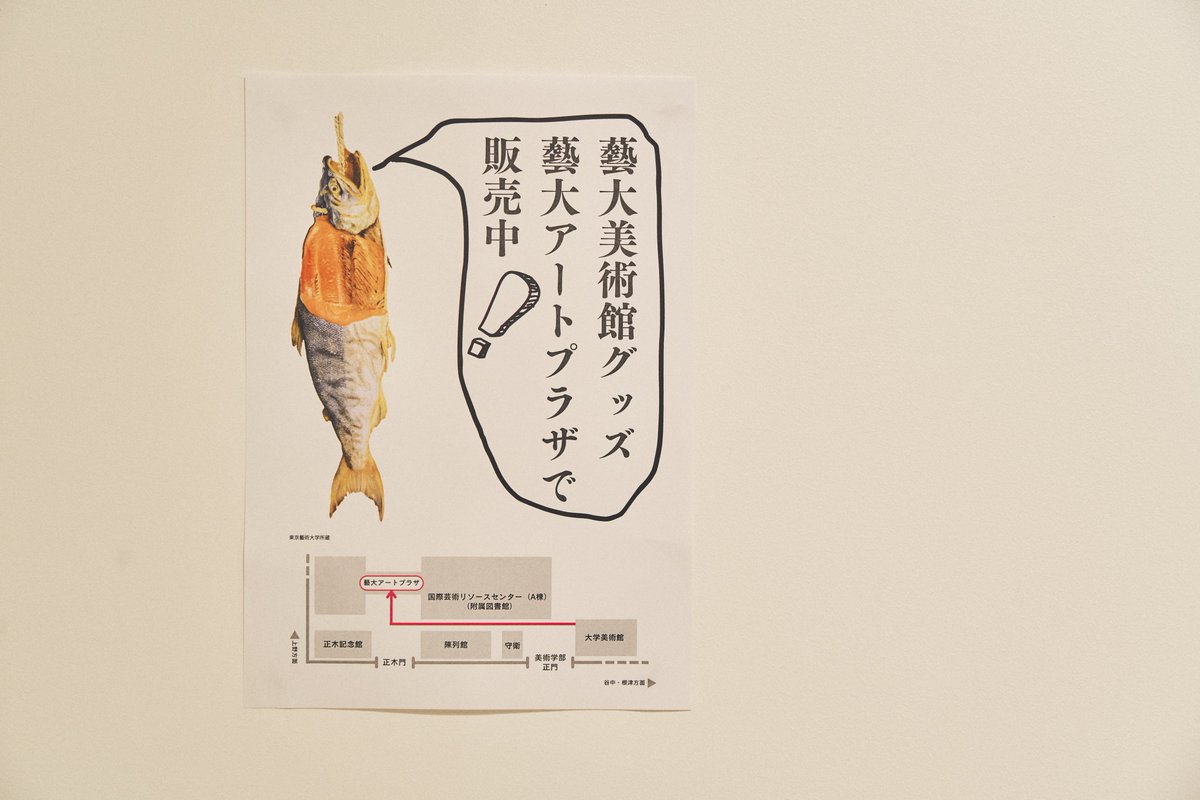 藝大美術館グッズ
藝大アートプラザで
販売中!
東京藝術大学所蔵
藝大アートプラザ
国際芸術リソースセンター（A棟）
（附属図書館）
大学美術館
正木記念館
陳列館
守衛
上野方面
正木門
美術学部
正門
谷中・根津方面